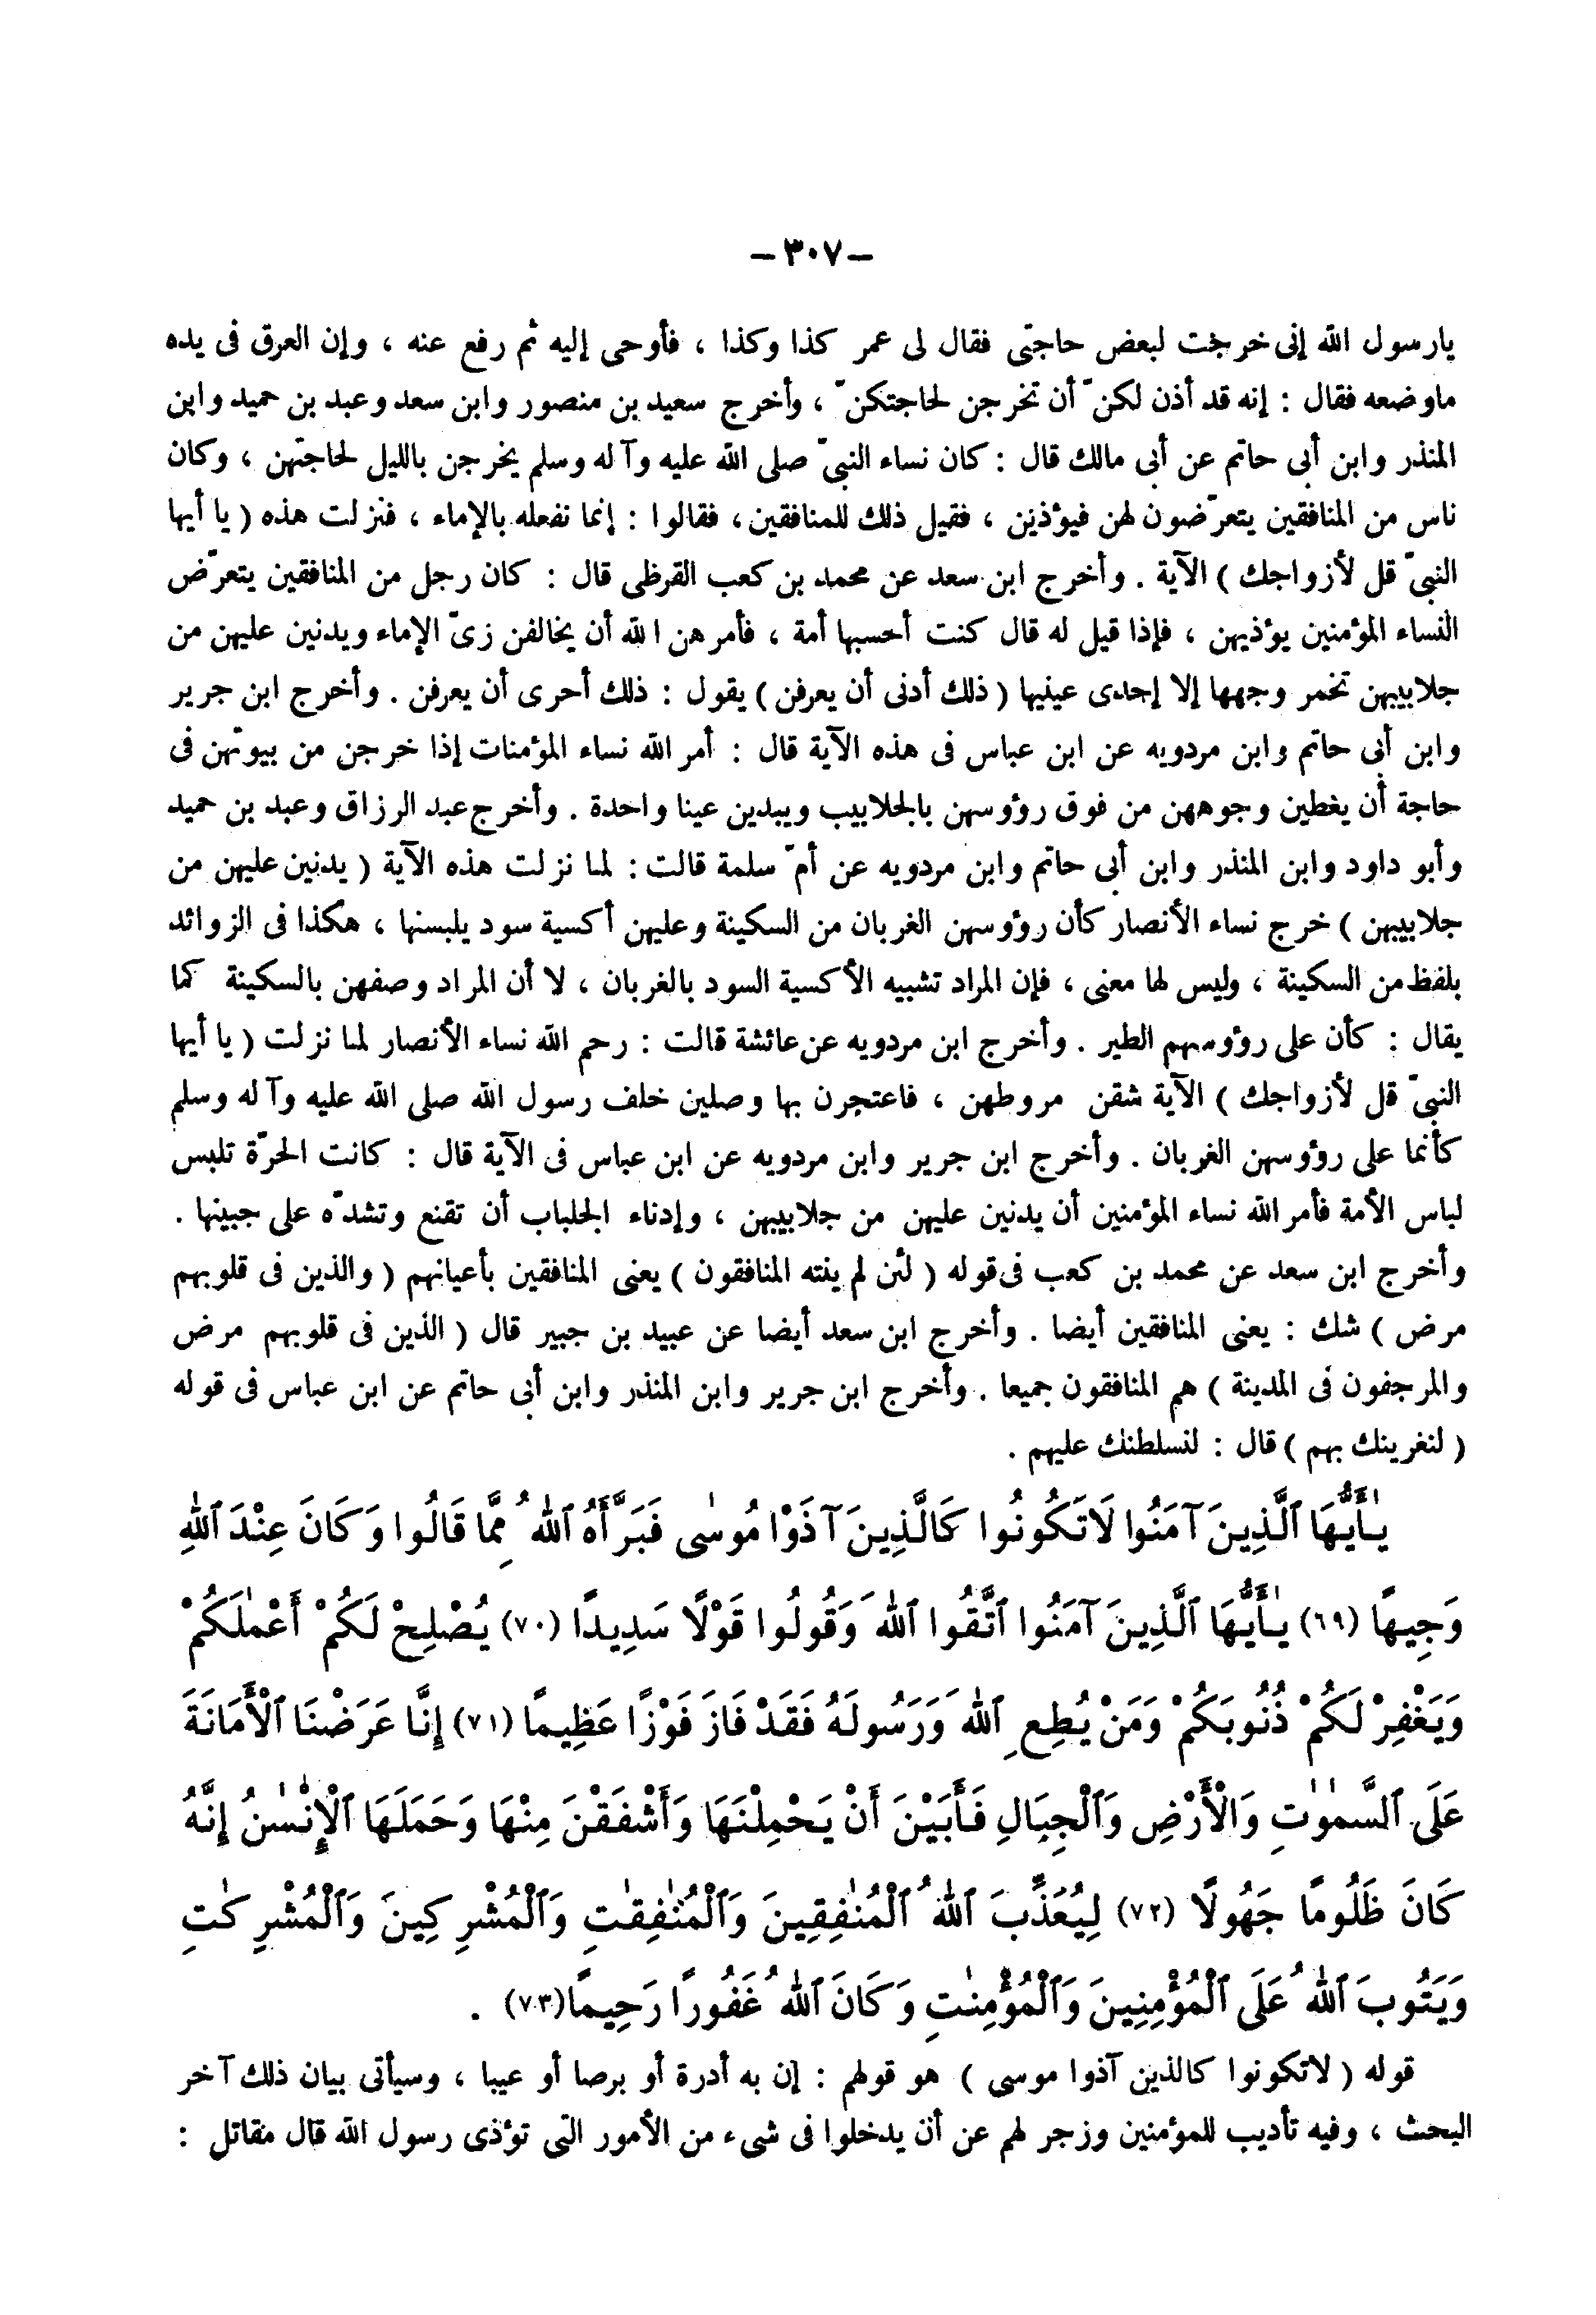 – ٣٠٧ –
يارسول الله إنى خرجت لبعض حاجتى فقال لى عمر كذا وكذا ، فأوحى إليه ثم رفع عنه ، وإن العرق فى يده
ماوضعه فقال : إنه قد أذن لكنّ أن تخرجن لحاجتكنّ ، وأخرج سعيد بن منصور وابن سعد وعبد بن حميد وابن
المنذر وابن أبى حاتم عن أبى مالك قال : كان نساء النبىّ صلى الله عليه وآله وسلم يخرجن بالليل لحاجتهن ، وكان
ناس من المنافقين يتعرّضون لهن فيؤذين ، فقيل ذلك للمنافقين ، فقالوا : إنما نفعله بالإماء ، فنزلت هذه ( يا أيها
النبىّ قل لأزواجك ) الآية . وأخرج ابن سعد عن محمد بن كعب القرظى قال : كان رجل من المنافقين يتعرّض
النساء المؤمنين يؤذيهن ، فإذا قيل له قال كنت أحسبها أمة ، فأمرهن الله أن يخالفن زىّ الإماء ويدنين عليهن من
جلابيبهن تخمر وجهها إلا إحدى عينيها ( ذلك أدنى أن يعرفن ) يقول : ذلك أحرى أن يعرفن . وأخرج ابن جرير
وابن أبى حاتم وابن مردويه عن ابن عباس فى هذه الآية قال : أمر الله نساء المؤمنات إذا خرجن من بيوتهن فى
حاجة أن يغطين وجوههن من فوق رؤوسهن بالجلابيب ويبدين عينا واحدة . وأخرج عبد الرزاق وعبد بن حميد
وأبو داود وابن المنذر وابن أبى حاتم وابن مردويه عن أمّ سلمة قالت : لما نزلت هذه الآية ( يدنين عليهن من
جلابيبهن ) خرج نساء الأنصار كأن رؤوسهن الغربان من السكينة وعليهن أكسية سود يلبسنها ، هكذا فى الزوائد
بلفظ من السكينة ، وليس لها معنى ، فإن المراد تشبيه الأكسية السود بالغربان ، لا أن المراد وصفهن بالسكينة كما
يقال : كأن على رؤوسهم الطير . وأخرج ابن مردويه عن عائشة قالت : رحم الله نساء الأنصار لما نزلت ( يا أيها
النبىّ قل لأزواجك ) الآية شقن مروطهن ، فاعتجرن بها وصلين خلف رسول الله صلى الله عليه وآله وسلم
كأنما على رؤوسهن الغربان . وأخرج ابن جرير وابن مردويه عن ابن عباس فى الآية قال : كانت الحرّة تلبس
لباس الأمة فأمر الله نساء المؤمنين أن يدنين عليهن من جلابيبهن ، وإدناء الجلباب أن تقنع وتشدّه على جبينها .
وأخرج ابن سعد عن محمد بن كعب فى قوله ( لئن لم ينته المنافقون ) يعنى المنافقين بأعيانهم ( والذين فى قلوبهم
مرض ) شك : يعنى المنافقين أيضا . وأخرج ابن سعد أيضا عن عبيد بن جبير قال ( الذين فى قلوبهم مرض
والمرجفون فى المدينة ) هم المنافقون جميعا . وأخرج ابن جرير وابن المنذر وابن أبى حاتم عن ابن عباس فى قوله
( لنغرينك بهم ) قال : لنسلطنك عليهم .
يَـٰأَيُّهَا ٱلَّذِينَ آمَنُوا لَاتَكُونُوا كَالَّذِينَ آذَوْا مُوسٰى فَبَرَّأَهُ ٱللهُ مِمَّا قَالُوا وَكَانَ عِنْدَ ٱللهِ
وَجِيهًا (٦٩) يَـٰأَيُّهَا ٱلَّذِينَ آمَنُوا ٱتَّقُوا ٱللهَ وَقُولُوا قَوْلًا سَدِيدًا (٧٠) يُصْلِحْ لَكُمْ أَعْمٰلَكُمْ
وَيَغْفِرْ لَكُمْ ذُنُوبَكُمْ وَمَنْ يُطِعِ ٱللهَ وَرَسُولَهُ فَقَدْ فَازَ فَوْزًا عَظِيمًا (٧١) إِنَّا عَرَضْنَا ٱلْأَمَانَةَ
عَلَى ٱلسَّمٰوٰتِ وَالْأَرْضِ وَٱلْجِبَالِ فَأَبَيْنَ أَنْ يَحْمِلْنَهَا وَأَشْفَقْنَ مِنْهَا وَحَمَلَهَا ٱلْإِنْسٰنُ إِنَّهُ
كَانَ ظَلُومًا جَهُولًا (٧٢) لِيُعَذِّبَ ٱللهُ ٱلْمُنٰفِقِينَ وَٱلْمُنٰفِقٰتِ وَٱلْمُشْرِكِينَ وَٱلْمُشْرِكٰتِ
وَيَتُوبَ ٱللهُ عَلَى ٱلْمُؤْمِنِينَ وَٱلْمُؤْمِنٰتِ وَكَانَ ٱللهُ غَفُورًا رَحِيمًا (٧٣) .
قوله ( لاتكونوا كالذين آذوا موسى ) هو قولهم : إن به أدرة أو برصا أو عيبا ، وسيأتى بيان ذلك آخر
البحث ، وفيه تأديب للمؤمنين وزجر لهم عن أن يدخلوا فى شىء من الأمور التى تؤذى رسول الله قال مقاتل :